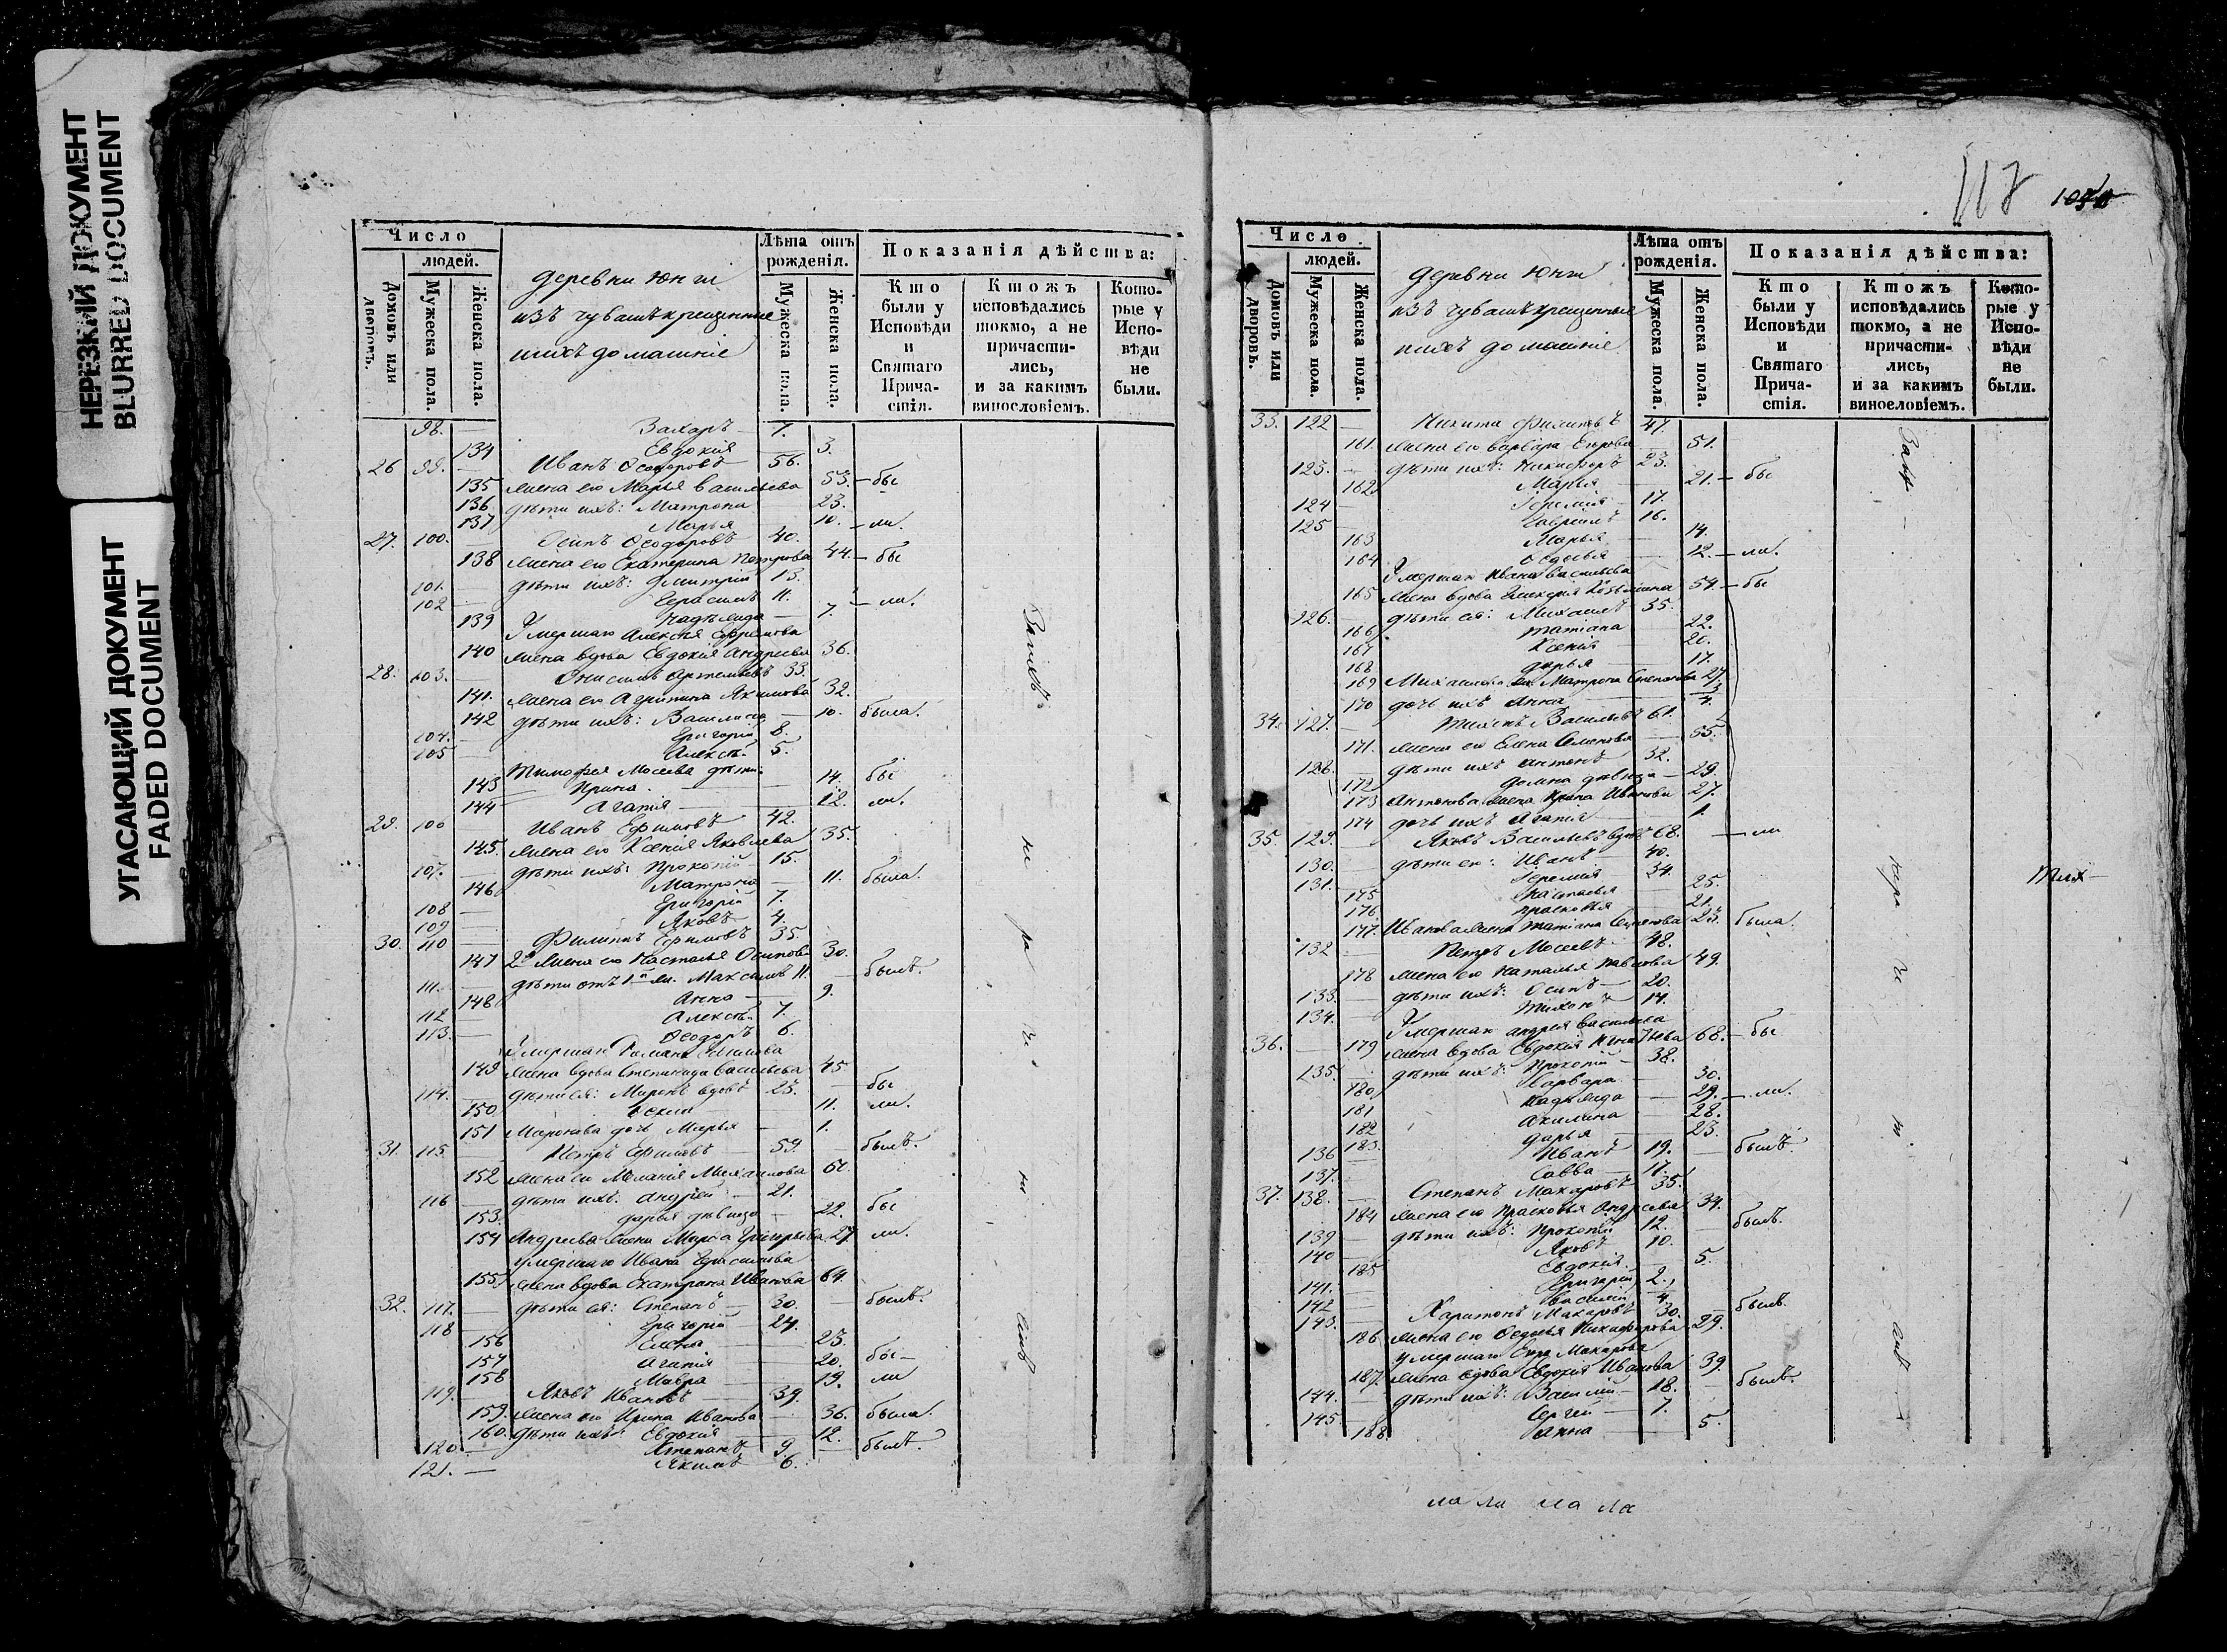 НЕРЕЗКИЙ ДОКУМЕНТ
BLURRED DOCUMENT
УГАСАЮЩИЙ ДОКУМЕНТ
FADED DOCUMENT
Число
людей.
Домовъ или дворовъ.
Мужеска пола.
Женска пола.
деревни Юнги
изъ чувашъ крещенные
ихъ домашніе
Лѣта отъ рожденія.
Мужеска пола.
Женска пола.
Показанія дѣйства:
Кто были у Исповѣди и Святаго Прича-стія.
Ктожъ исповѣдались токмо, а не причасти-лись, и за какимъ винословіемъ.
Кото-рые у Испо-вѣди не были.
98. — Захаръ — 7.
134 Евдокія — 3.
26 99. — Иванъ Ѳеодоровъ 56.
135 жена его Марья Васильева 53. — бы
136 дѣти ихъ: Матрона 23.
137 Марья 10. — ли.
27. 100. Осипъ Ѳеодоровъ 40.
138 жена его Екатерина Петрова 44. — бы
101. дѣти ихъ: Дмитрій 13.
102 — Герасимъ 11. — ли.
139 Надежда — 7.
Умершаго Алексея Ефремова
140 жена вдова Евдокія Андреева 36.
28. 103. — Онисимъ 33.
141. жена его Агрипина Якимова 32.
142 дѣти ихъ: Василиса — 10. была.
104. — Григорій 8.
105 — Алексѣй 5.
Тимофея Мосеева дѣти:
143 Ирина. — 14. бы
144 Агапія — 12. ли.
29. 106 Иванъ Ефимовъ 42.
145. жена его Ксенія Яковлева 35.
107. — дѣти ихъ: Прокопій 15.
146 Матрона — 11. была.
108 — Григорій 7.
109 — Яковъ 4.
30. 110 — Филипъ Ефимовъ 35.
147 2я жена его Настасья Осипова 30.
111. — дѣти отъ 1й ж. Максимъ 11. — былъ.
148 Анна — 9.
112 — Алексѣй 7.
113. — Ѳеодоръ 6.
149 жена вдова Степанида Васильева 45
114. — дѣти ея: Миронъ вдовъ 23. — бы
150 11. ли.
151 Миронова дочь Марья — 1.
31. 115 — Петръ Ефимовъ — 59. былъ.
152 жена его Меланія Михаилова
116 — дѣти ихъ: Андрей — 21.
153. Дарья дѣвица — 22. бы
154 Андреева жена Марѳа Григорьева 27 ли.
умершаго Ивана Герасимова
155 жена вдова Екатерина Иванова 64.
32. 117. — дѣти ея: Степанъ — 30. — былъ.
118 — Григорій — 24.
156 Елена — 23.
157 Агапія — 20. бы —
158 Мавра — 19. ли
119. Яковъ Ивановъ — 39.
159. жена его Ирина Иванова — 36. была.
160. дѣти ихъ: Евдокія — 12.
120. — Степанъ 9. — былъ.
121. — Якимъ 6.
118
Число
людей.
Домовъ или дворовъ.
Мужеска пола.
Женска пола.
деревни Юнги
изъ чувашъ крещенные
ихъ домашніе
Лѣта отъ рожденія.
Мужеска пола.
Женска пола.
Показанія дѣйства:
Кто были у Исповѣди и Святаго Прича-стія.
Ктожъ исповѣдались токмо, а не причасти-лись, и за какимъ винословіемъ.
Кото-рые у Испо-вѣди не были.
33. 122 — Никита Филиповъ 47.
161. жена его Варвара 51.
123. — дѣти ихъ: Никифоръ 23.
162 Марья — 21. — бы
124 — Іеремія — 17.
125 — Гаврилъ 16.
163 Марья — 14.
164 Ѳедосья — 12. — ли.
Умершаго Ивана Васильева
165 жена вдова 54. — бы
126. — дѣти ея: Михаилъ 35.
166 Татіана — 22.
167 Ксенія — 20.
168 Дарья — 17.
169 Михаилова жена Матрона Степанова 27
170 дочь ихъ Анна — 4.
34. 127. — Васильевъ 61.
171. жена его Елена Семенова 55.
128. — дѣти ихъ Антонъ 32.
172 Домна дѣвица — 29.
173 Антонова жена Ирина Иванова 27.
174 дочь ихъ Агапія 1.
35. 129. — Яковъ Васильевъ вдовъ 68. — ли
130. — дѣти его: Иванъ — 40.
131. — Іеремія 34.
175 Настасья 25.
176. Прасковья 21.
177. Иванова жена Татіана 23. была.
132 — Петръ Мосеевъ — 48.
178 жена его Наталья Павлова 49.
133. — дѣти ихъ: Осипъ — 20.
134. — Тихонъ — 14.
Умершаго Андрея Васильева
36. 179 жена вдова Евдокія Игнатьева 68. — бы
135. — дѣти ихъ: Прокопій — 38.
180 Варвара — 30.
181 Надежда — 29. — ли.
182 Акилина — 28.
183. Дарья — 23.
136 — Иванъ 19. — былъ.
137. — Савва — 17.
37. 138. — Степанъ Макаровъ 35.
184 жена его Прасковья Андреева 34.
139 — дѣти ихъ: Прокопій 12. — былъ.
140 — Яковъ 10.
185 Евдокія. — 5.
141. — Григорій 2.
142 — Василій 4.
143. — Харитонъ Макаровъ 30. — былъ.
186 жена его Ѳедосья Никифорова 29.
187. жена вдова Евдокія Иванова 39.
144. — дѣти ихъ: Василій — 18. — былъ.
145. Сергей — 7.
188 Анна — 5.